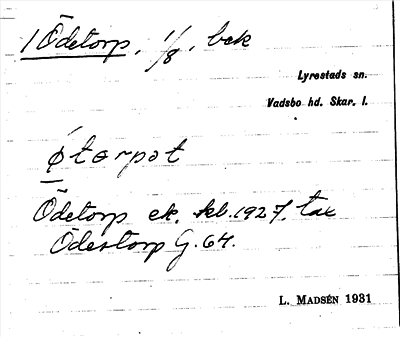 1 Ödetorp, 1/8, bek
Lyrestads sn.
Vadsbo hd. Skar. l.
øtərpət
Ödetorp ek. kb. 1927, tax
Ödestorp G. 64.
L. MADSÉN 1931